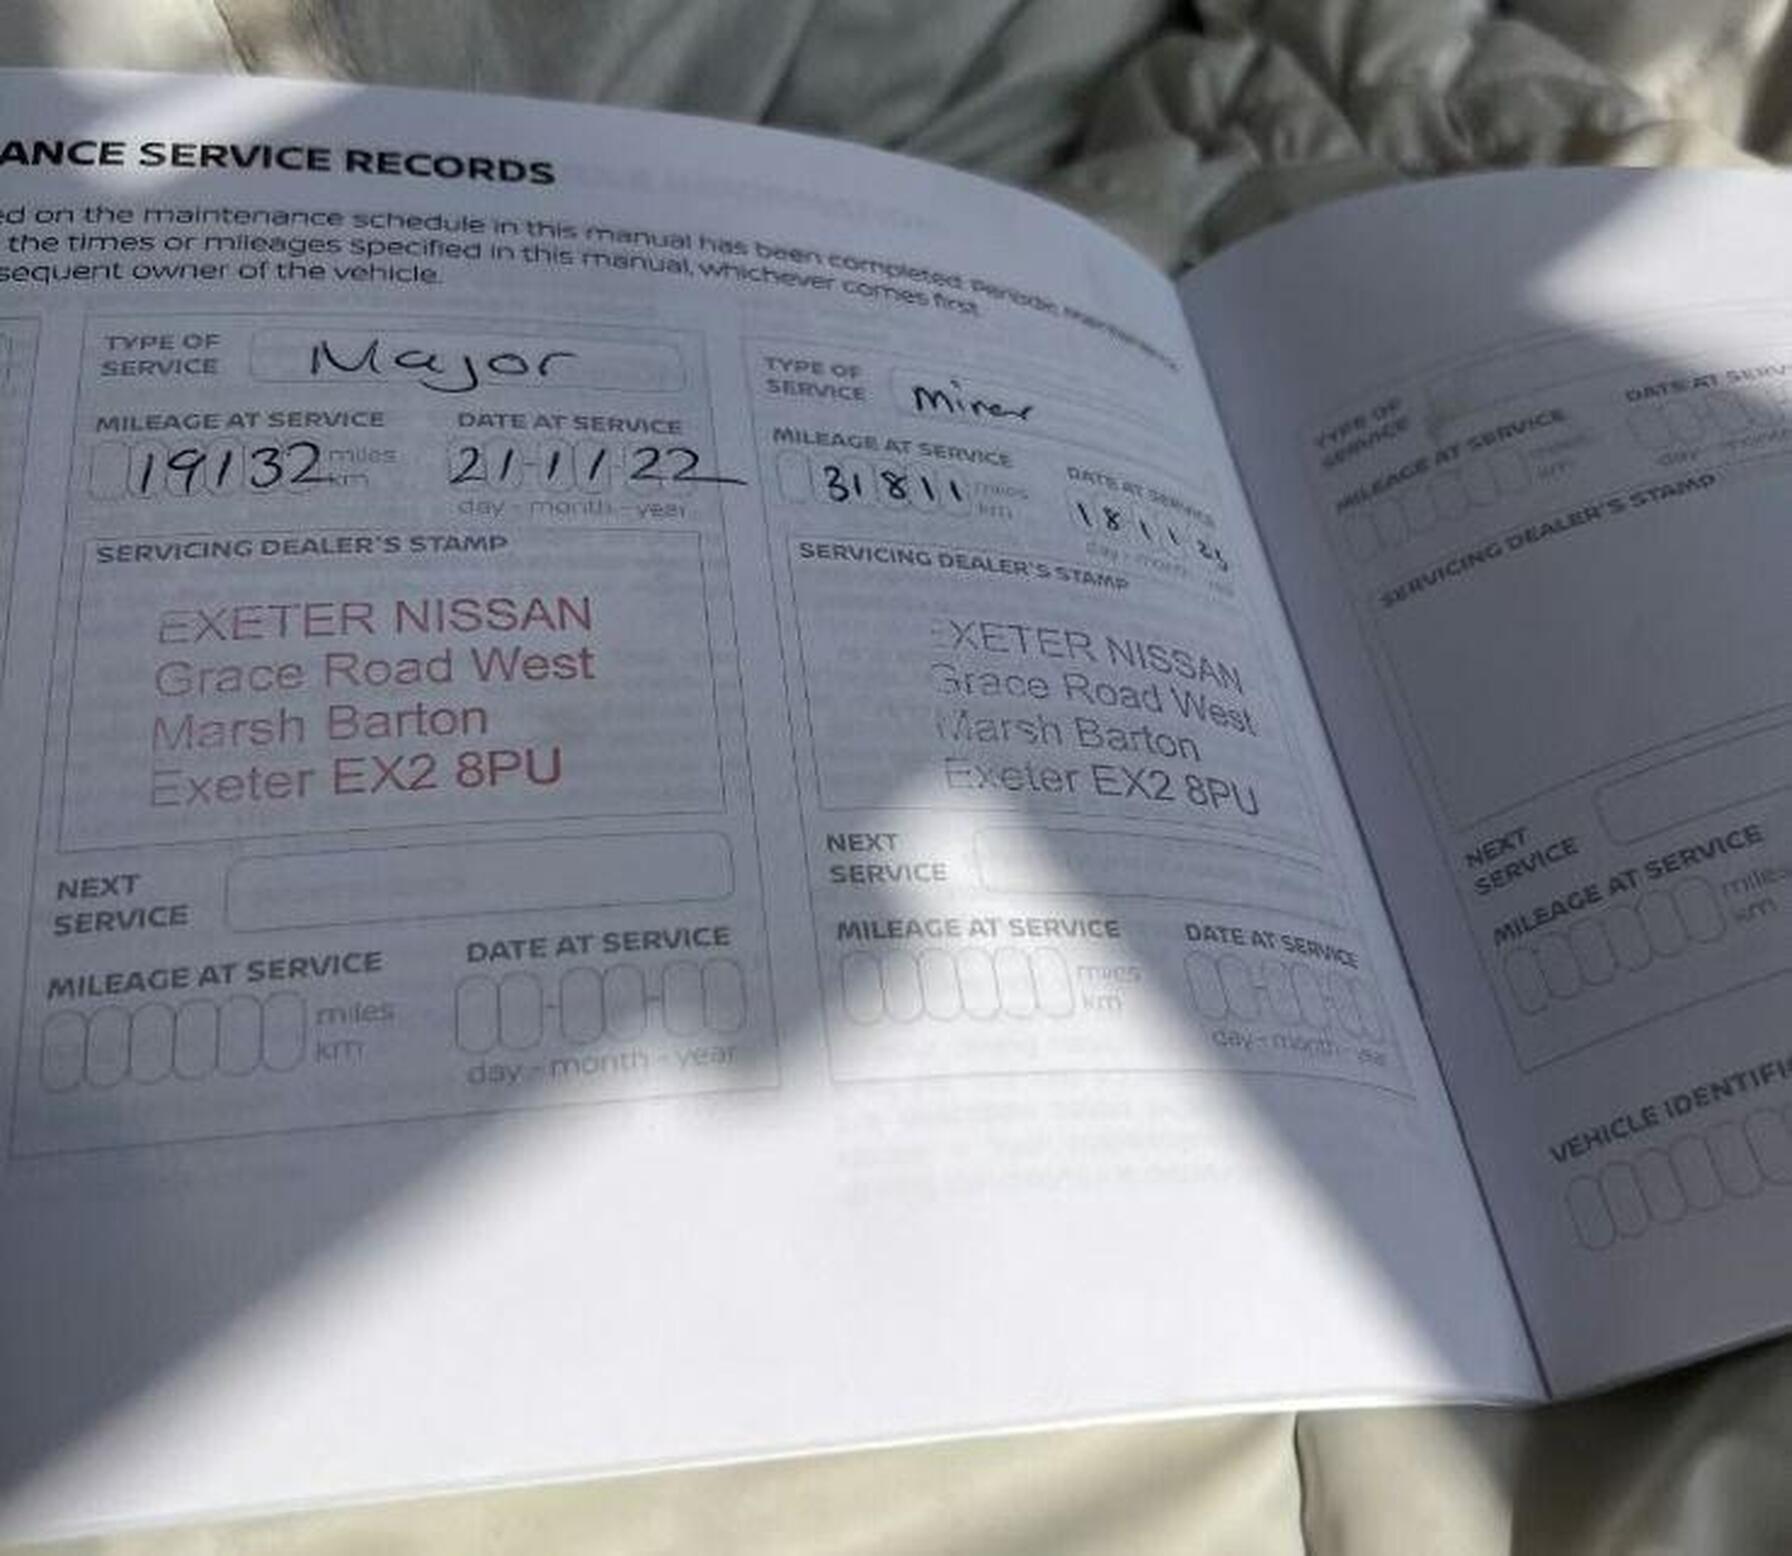 ANCE SERVICE RECORDS
ed on the maintenance schedule in this manual has been completed. Periodic maintenance
the times or mileages specified in this manual, whichever comes first.
sequent owner of the vehicle.
TYPE OF
SERVICE
Major
MILEAGE AT SERVICE
DATE AT SERVICE
19132 miles
km
21-1/1/22
day - month - year
SERVICING DEALER'S STAMP
EXETER NISSAN
Grace Road West
Marsh Barton
Exeter EX2 8PU
NEXT
SERVICE
MILEAGE AT SERVICE
DATE AT SERVICE
miles
km
day - month - year
TYPE OF
SERVICE
Minor
MILEAGE AT SERVICE
DATE AT SERVICE
31811 miles
km
18 11
day - month - year
SERVICING DEALER'S STAMP
EXETER NISSAN
Grace Road West
Marsh Barton
Exeter EX2 8PU
NEXT
SERVICE
MILEAGE AT SERVICE
DATE AT SERVICE
miles
km
day - month - year
TYPE OF
SERVICE
MILEAGE AT SERVICE
DATE AT SERV
miles
km
day - month
SERVICING DEALER'S STAMP
NEXT
SERVICE
MILEAGE AT SERVICE
miles
km
VEHICLE IDENTIFI